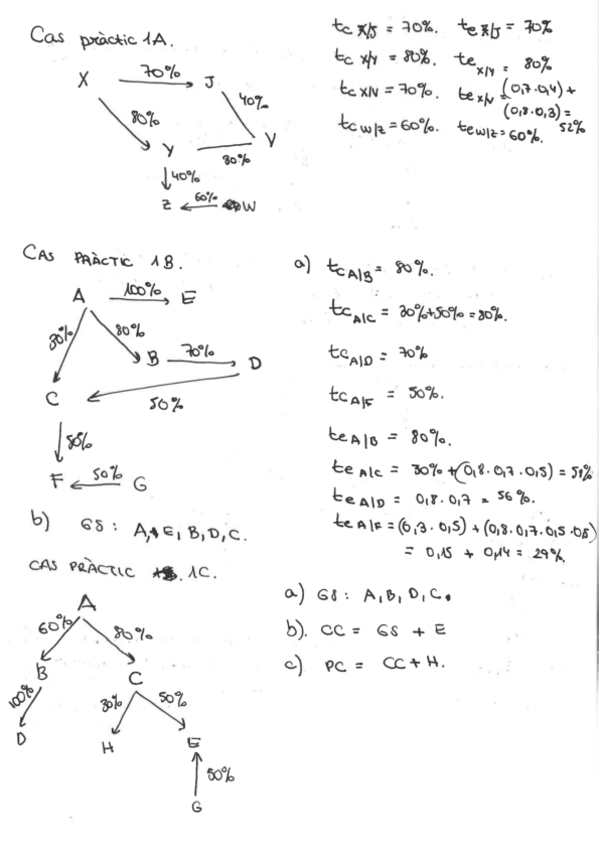 Cas pràctic 1A.
X 70% J
80% 40%
Y 80% V
40%
Z 60% W
tc x/J = 70%. te x/J = 70%
tc x/Y = 80%. te x/Y = 80%
tc x/V = 70%. te x/V = (0,7·0,4) +
(0,8·0,3) = 52%
tc w/z = 60%. te w/z = 60%.
CAS PRÀCTIC 1B.
A 100% E
30% 80% B 70% D
C 50%
50%
F 50% G
b) GS: A, E, B, D, C.
a) tc A|B = 80%.
tc A|C = 30% + 50% = 80%.
tc A|D = 70%
tc A|F = 50%.
te A|B = 80%.
te A|C = 30% + (0,8·0,7·0,5) = 58%
te A|D = 0,8·0,7 = 56%.
te A|F = (0,3·0,5) + (0,8·0,7·0,5·0,5)
= 0,15 + 0,14 = 29%.
CAS PRÀCTIC 1C.
A
60% 80%
B C
100% 30% 50%
D H E
50%
G
a) GS: A, B, D, C.
b). CC = GS + E
c) PC = CC + H.